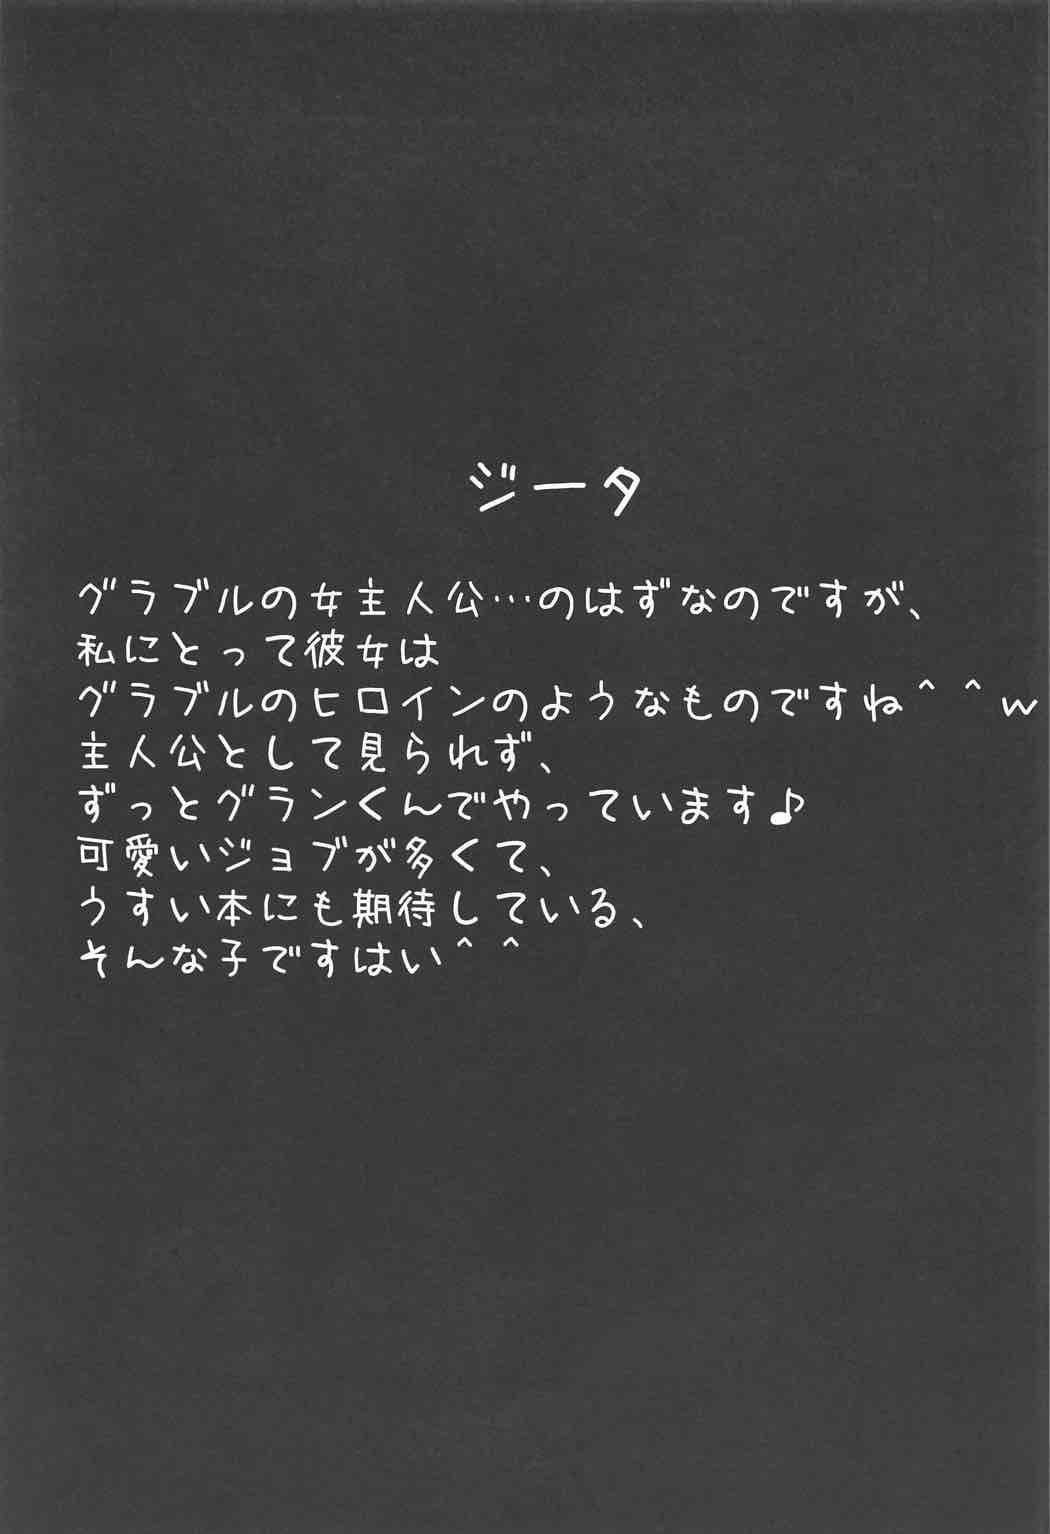 ジータ
グラブルの女主人公…のはずなのですが、
私にとって彼女は
グラブルのヒロインのようなものですね＾＾ｗ
主人公として見られず、
ずっとグランくんでやっています♪
可愛いジョブが多くて、
うすい本にも期待している、
そんな子ですはい＾＾